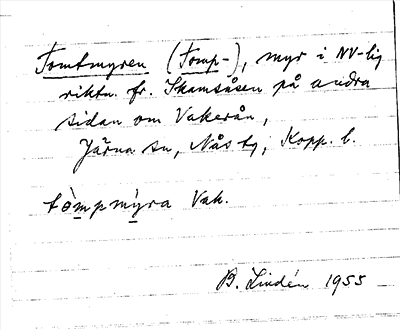 Tomtmyren (Tomp-), myr i NV-lig
riktn. fr. Skamsåsen på andra
sidan om Vakerån,
Järna sn, Nås tg; Kopp. l.
tòmpmỳra Vak.
B. Lindén 1955